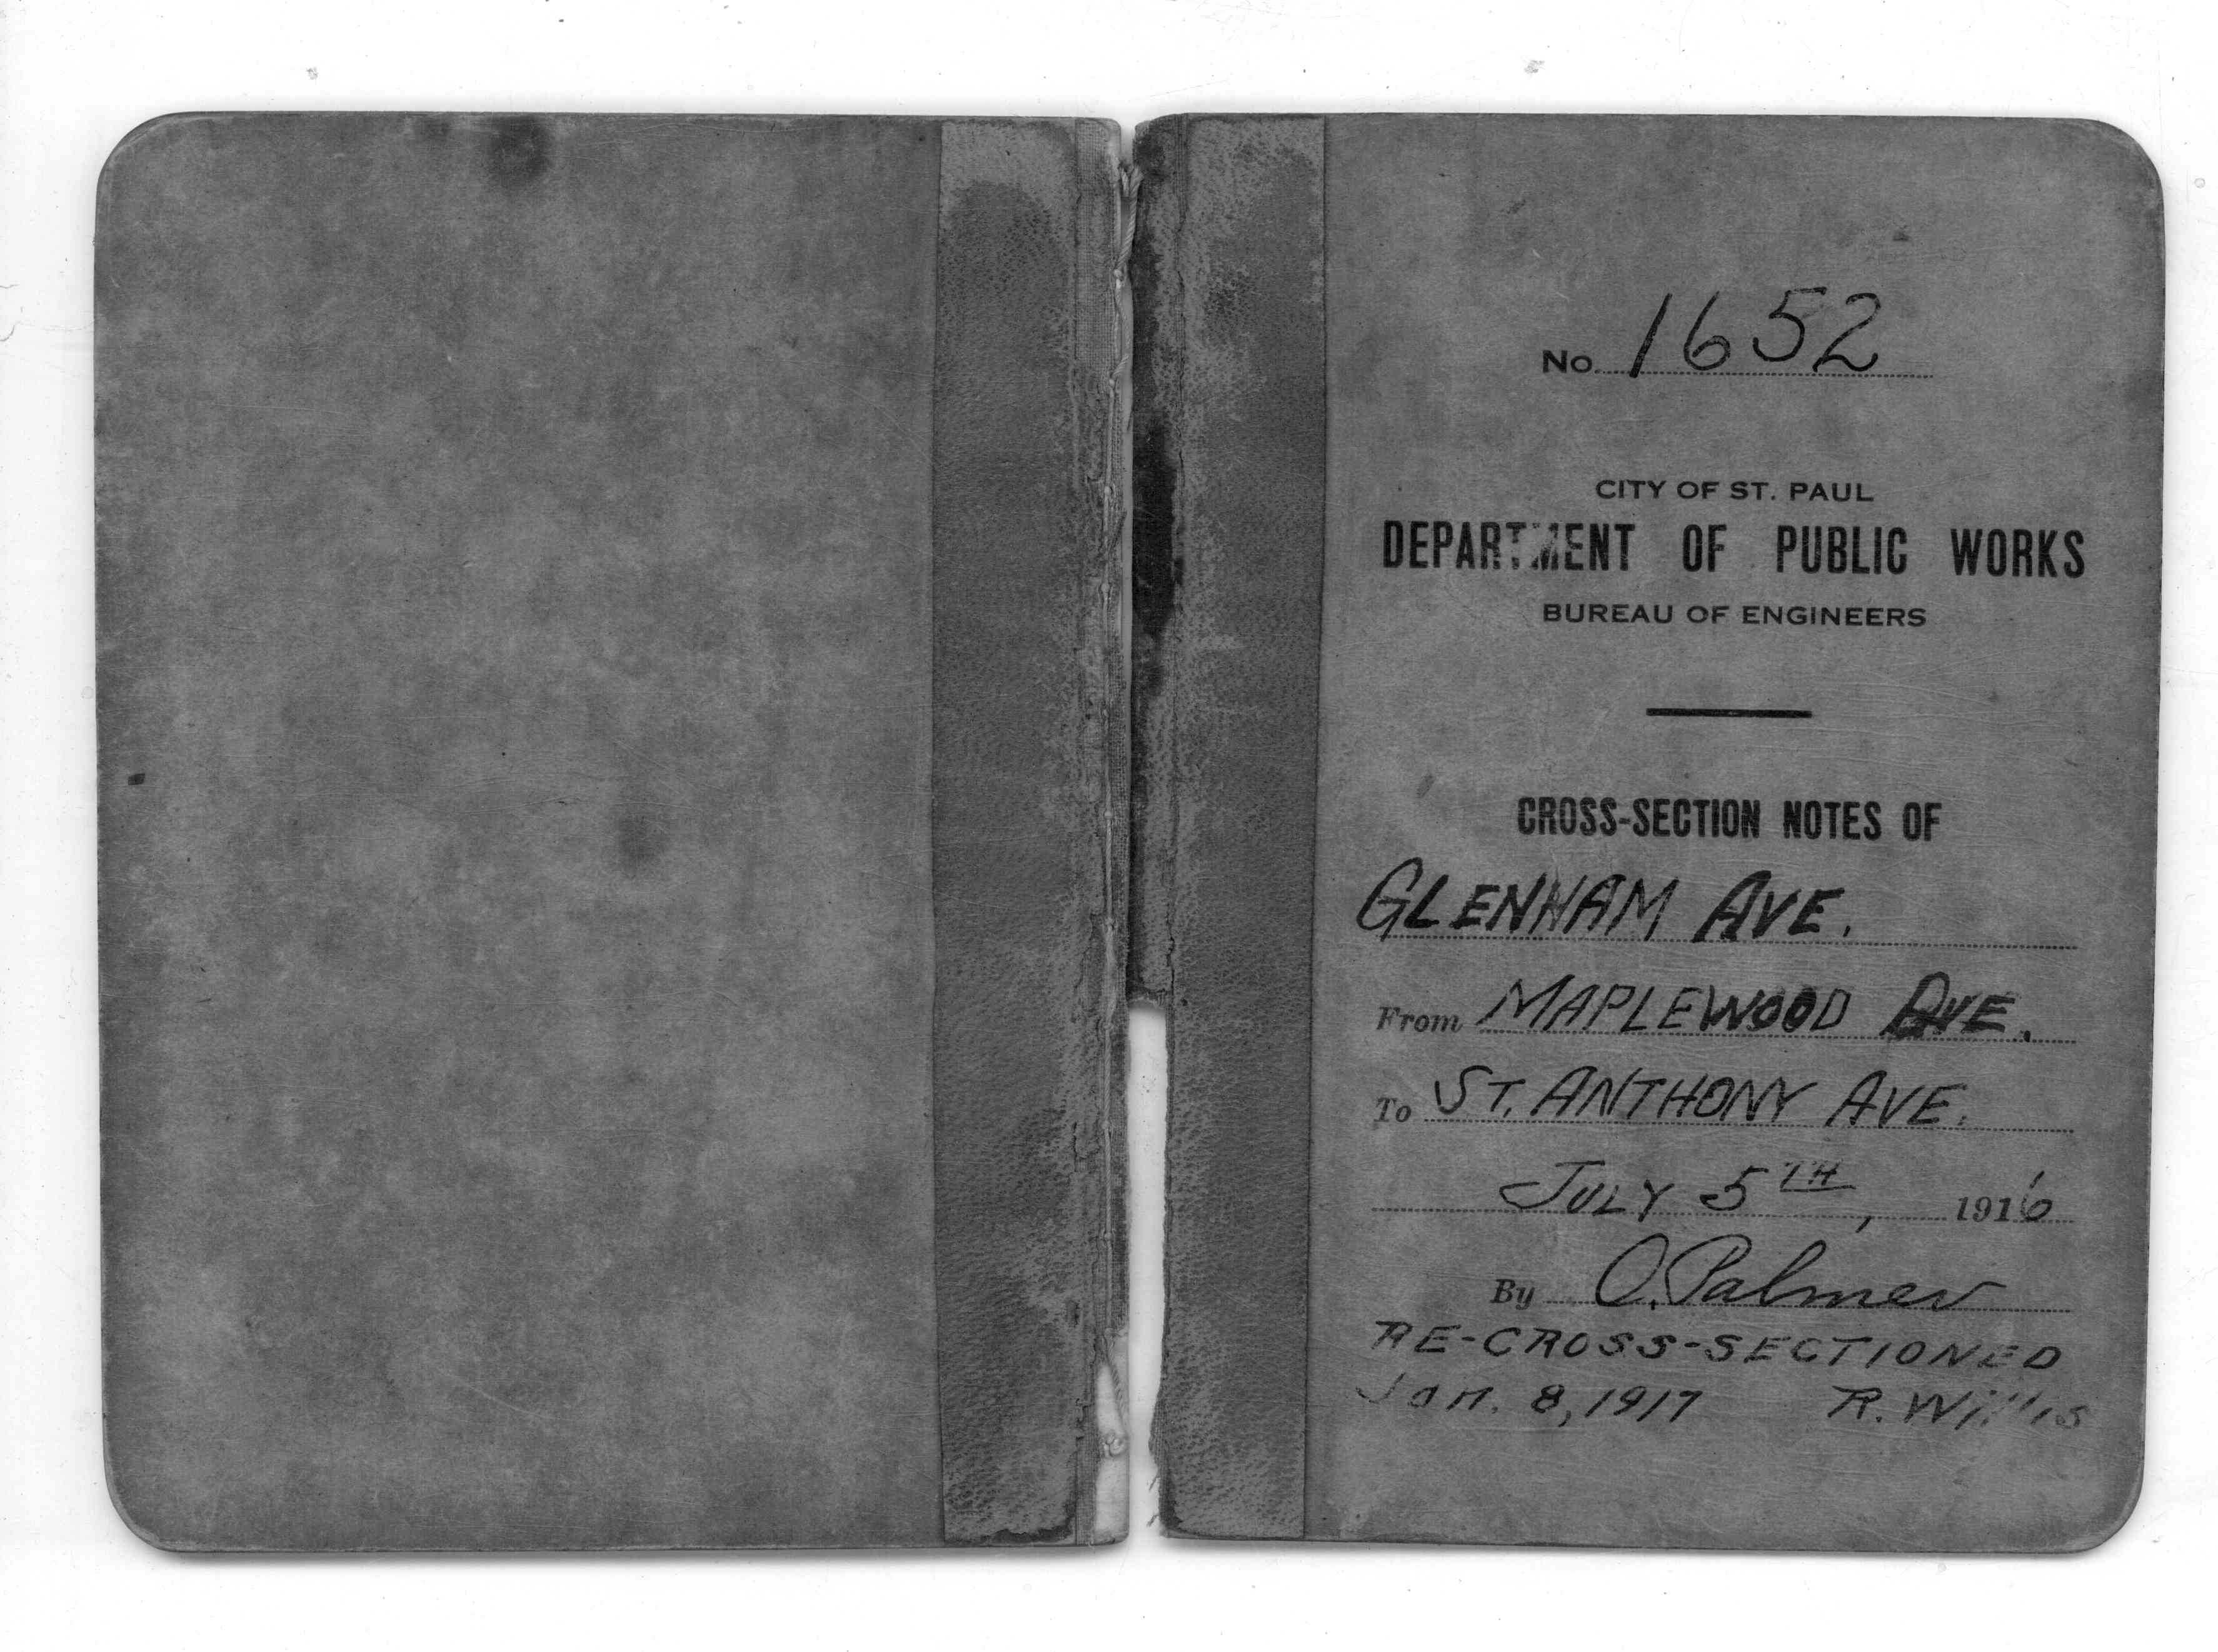 No. 1652
CITY OF ST. PAUL
DEPARTMENT OF PUBLIC WORKS
BUREAU OF ENGINEERS
CROSS-SECTION NOTES OF
GLENHAM AVE.
From MAPLEWOOD AVE.
To ST. ANTHONY AVE.
JULY 5TH, 1916
By O. Palmer
RE-CROSS-SECTIONED
Jan. 8, 1917 R. Willis